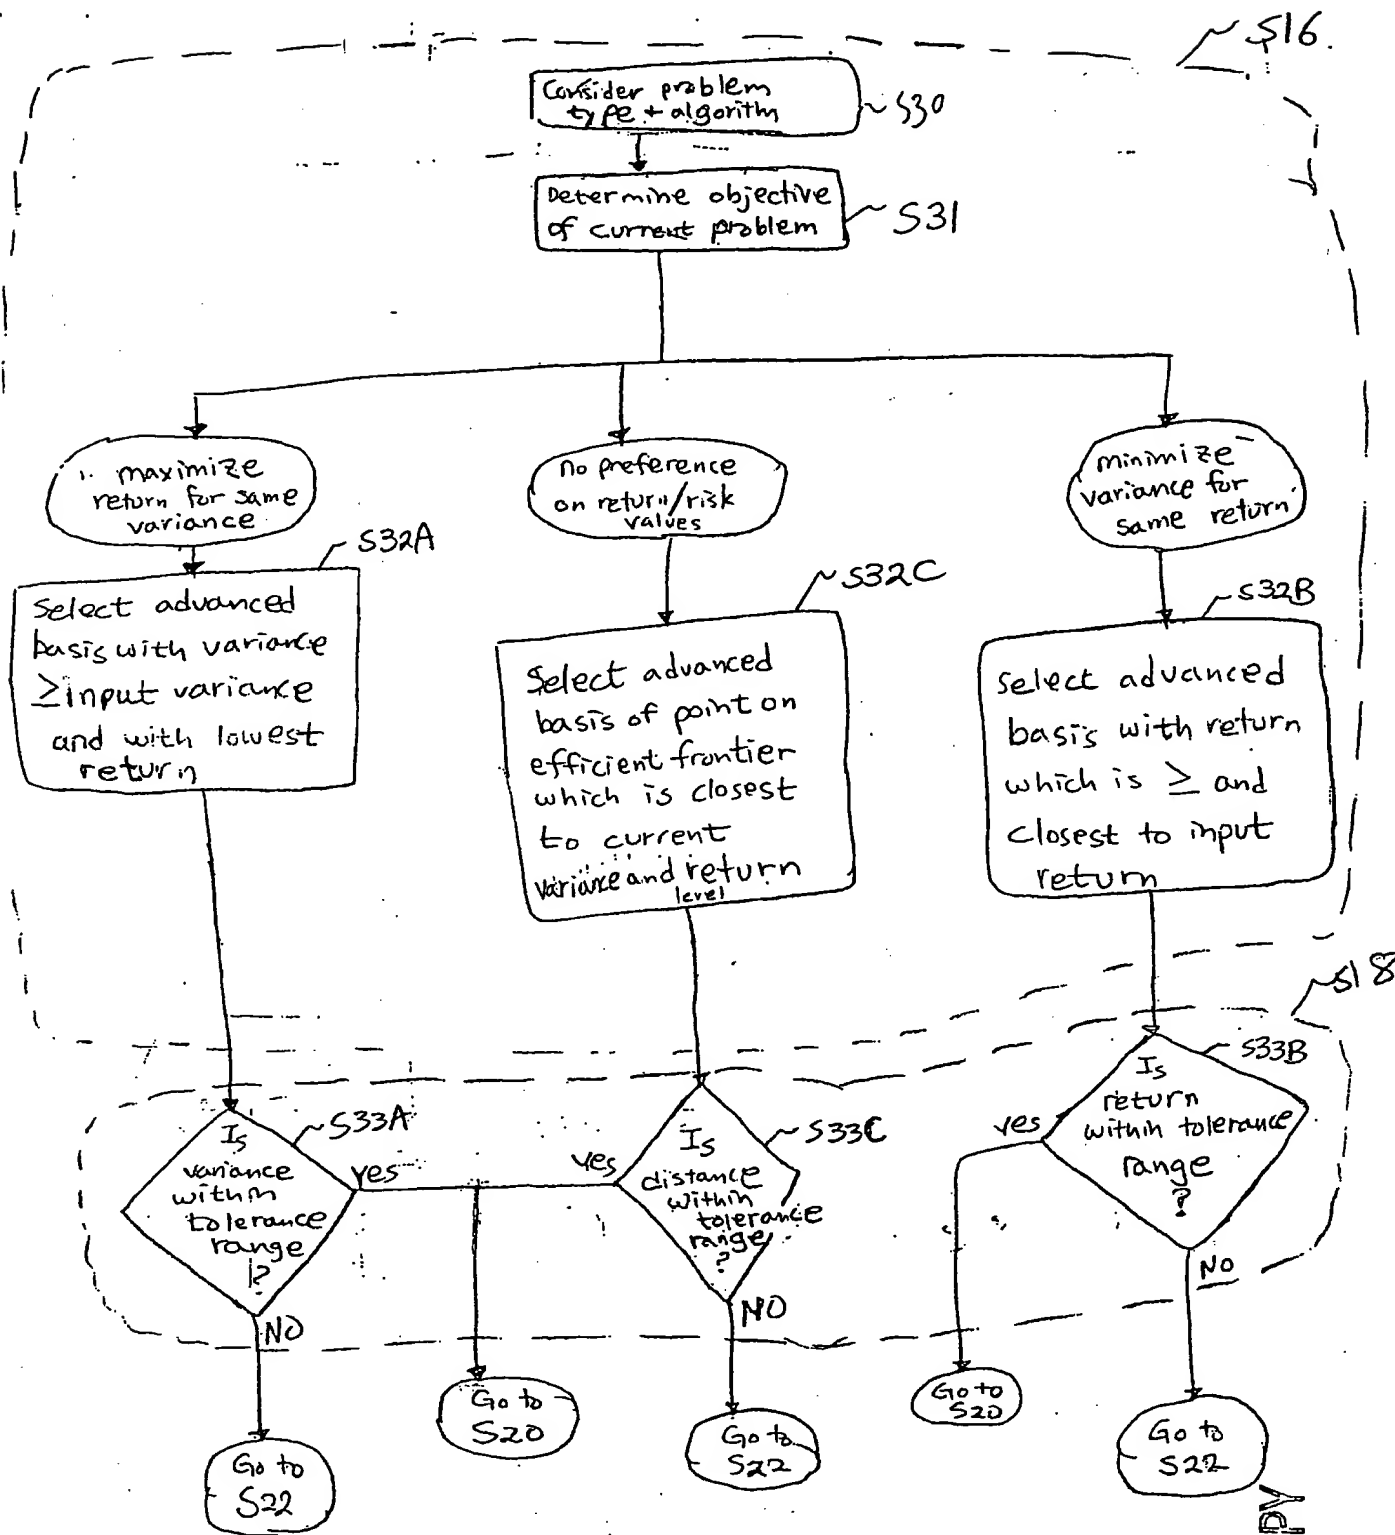 S16.
Consider problem
type + algorithm
S30
Determine objective
of current problem
S31
maximize
return for same
variance
no preference
on return/risk
values
minimize
variance for
same return
S32A
Select advanced
basis with variance
≥ input variance
and with lowest
return
S32C
Select advanced
basis of point on
efficient frontier
which is closest
to current
variance and return
level
S32B
Select advanced
basis with return
which is ≥ and
closest to input
return
S18
S33A
Is
variance
within
tolerance
range
?
yes
NO
S33C
Is
distance
within
tolerance
range
?
yes
NO
S33B
Is
return
within tolerance
range
?
yes
NO
Go to
S22
Go to
S20
Go to
S22
Go to
S20
Go to
S22
PY